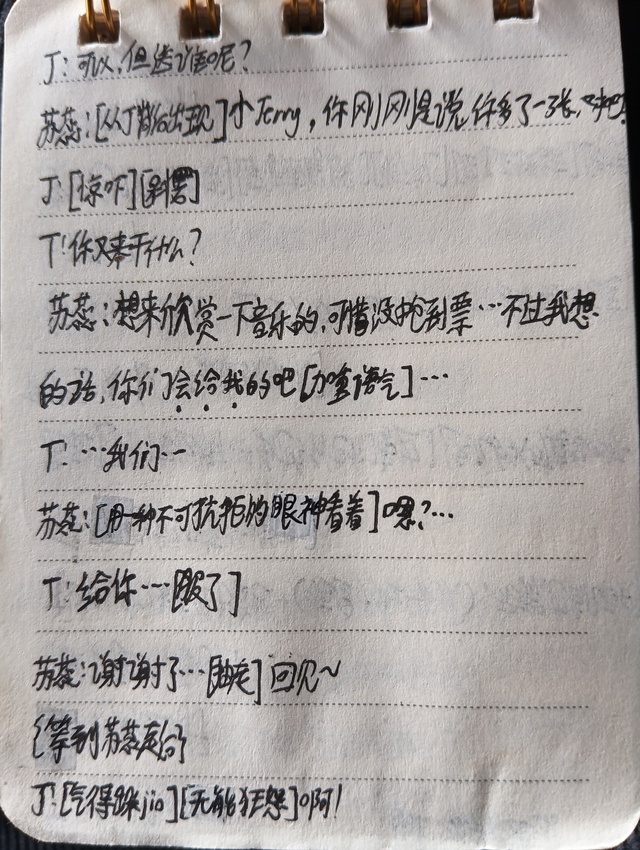 J：可以，但送谁呢？
苏蕊：[从J背后出现]小Jerry，你刚刚是说你多了一张，对吧！
J：[惊吓]
T：你又来干什么？
苏蕊：想来欣赏一下音乐的，可惜没抢到票…不过我想
的话，你们会给我的吧[加重语气]…
T：…我们…
苏蕊：[用一种不可抗拒的眼神看着]嗯？…
T：给你…[服了]
苏蕊：谢谢了…[抽走]回见~
{等到苏蕊走后}
J：[气得跺jio][无能狂怒]啊！